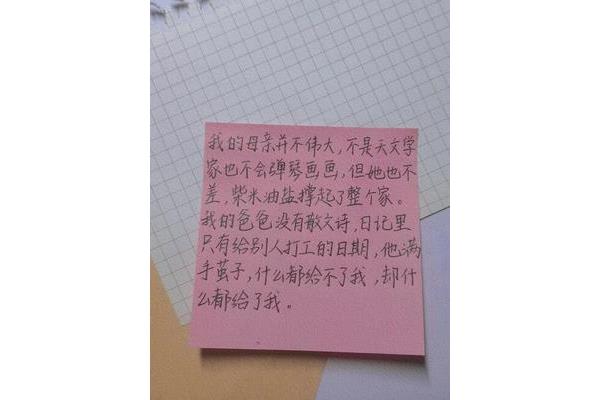 我的母亲并不伟大,不是天文学
家也不会弹琴画画,但她也不
差,柴米油盐撑起了整个家。
我的爸爸没有散文诗,日记里
只有给别人打工的日期,他满
手茧子,什么都给不了我,却什
么都给了我。